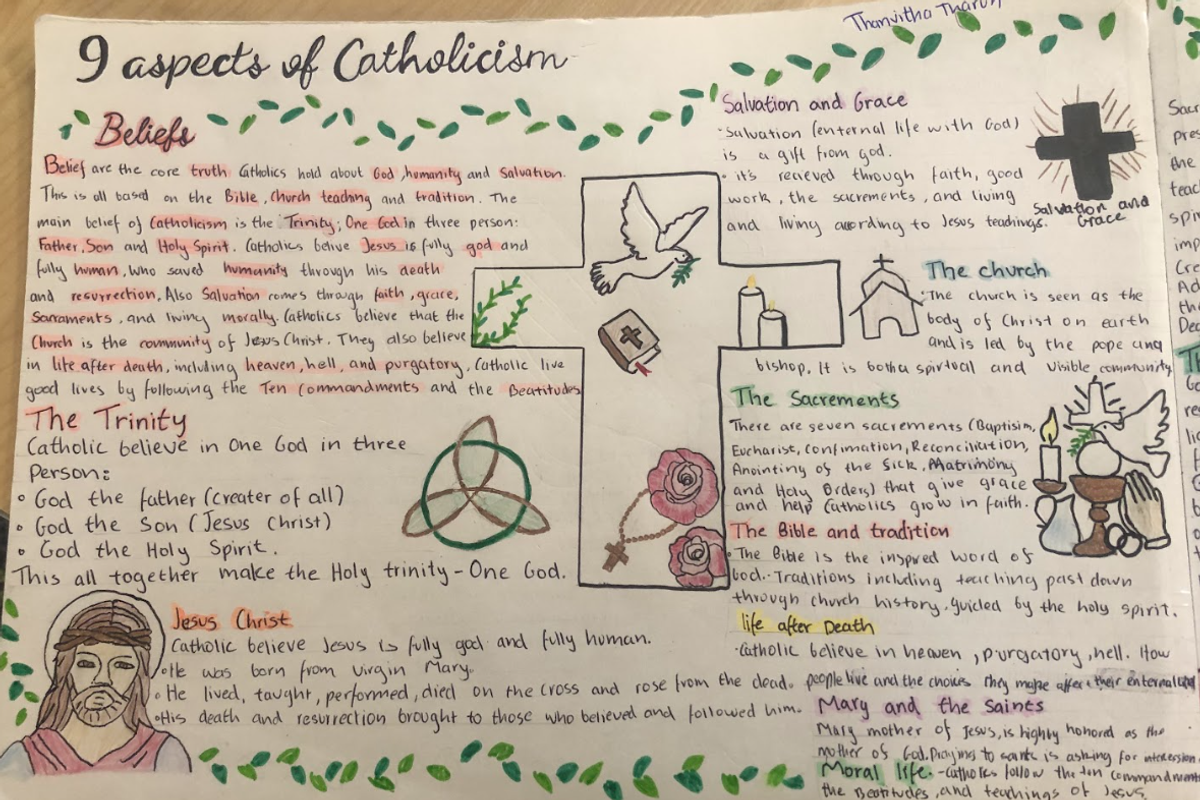 Thanvitha Tharun
9 aspects of Catholicism
Beliefs
Belief are the core truth Catholics hold about God, humanity and Salvation.
This is all based on the Bible, Church teaching and tradition. The
main belief of Catholicism is the Trinity; One God in three person:
Father, Son and Holy Spirit. Catholics belive Jesus is fully god and
fully human, who saved humanity through his death
and resurrection, Also Salvation comes through faith, grace,
Sacraments, and living morally. Catholics believe that the
Church is the community of Jesus Christ. They also believe
in life after death, including heaven, hell, and purgatory, Catholic live
good lives by following the Ten Commandments and the Beatitudes
The Trinity
Catholic believe in One God in three
Person:
• God the father (creater of all)
• God the Son (Jesus Christ)
• God the Holy Spirit.
This all together make the Holy trinity - One God.
Jesus Christ
Catholic believe Jesus is fully god and fully human.
• He was born from virgin Mary.
• He lived, taught, performed, died on the cross and rose from the dead.
• His death and resurrection brought to those who believed and followed him.
Salvation and Grace
• Salvation (enternal life with God)
is a gift from god.
• it's recieved through faith, good
work, the sacrements, and living
and living according to Jesus teachings.
Salvation and
Grace
The church
• The church is seen as the
body of Christ on earth
and is led by the pope and
bishop. It is both a spirtual and visible community
The Sacrements
There are seven sacrements (Baptisim,
Eucharist, Confimation, Reconciliation,
Anointing of the Sick, Matrimony
and Holy Orders) that give grace
and help Catholics grow in faith.
The Bible and tradition
• The Bible is the inspred word of
God. Traditions including teaching past down
through church history, guided by the holy spirit.
life after Death
• Catholic believe in heaven, purgatory, hell. How
people live and the choices they make affer their enternal
Mary and the Saints
Mary, mother of Jesus, is highly honored as the
mother of God. Praying to saints is asking for intercession
Moral life. - Catholics follow the ten commandments
the Beatitudes, and teachings of Jesus.